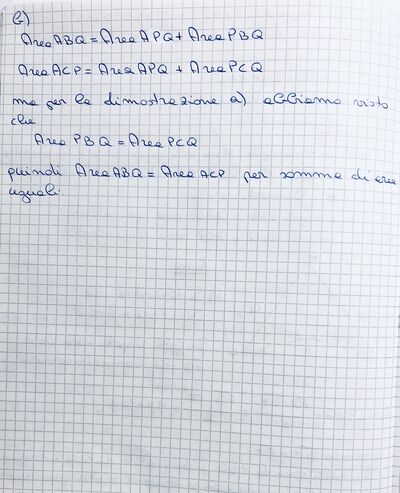 b)
Area ABQ = Area APQ + Area PBQ
Area ACP = Area APQ + Area PCQ
ma per la dimostrazione a) abbiamo visto
che
Area PBQ = Area PCQ
quindi Area ABQ = Area ACP per somma di aree
uguali.